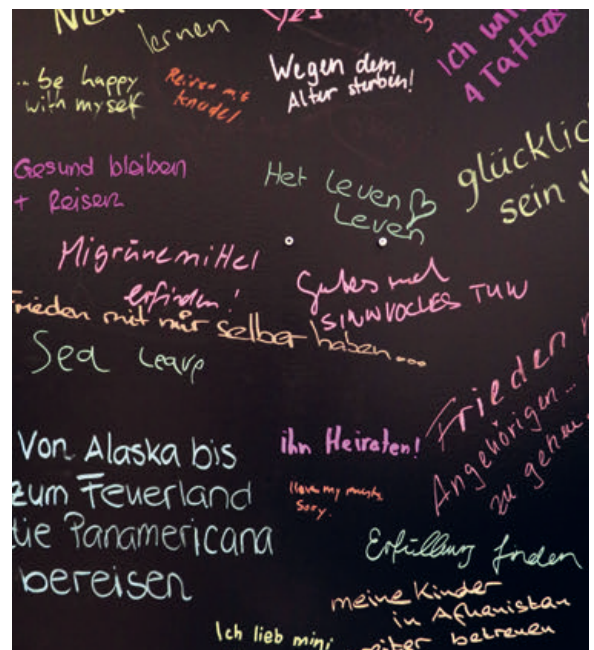 lernen
.. be happy
with myself
Reisen mit
Knödel
Wegen dem
Alter sterben!
Ich
4 Tattoos
Gesund bleiben
+ Reisen
Het Leven
Leven
glücklic
sein
Migränemittel
erfinden!
Gutes und
SINNVOLLES TUN
Frieden mit mir selber haben...
Sea Leave
Frieden
Angehörigen...
zu gehen
Von Alaska bis
zum Feuerland
die Panamericana
bereisen
ihn Heiraten!
I love my
Sory.
Erfüllung finden
meine Kinder
in Afghanistan
betreuen
Ich lieb mini